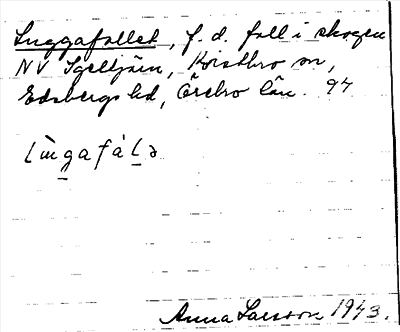 Luggafallet, f. d. fall i skogen
NV Igeltjärn, Kvistbro sn,
Edsbergs hd, Örebro län. 94
Anna Larsson 1943.